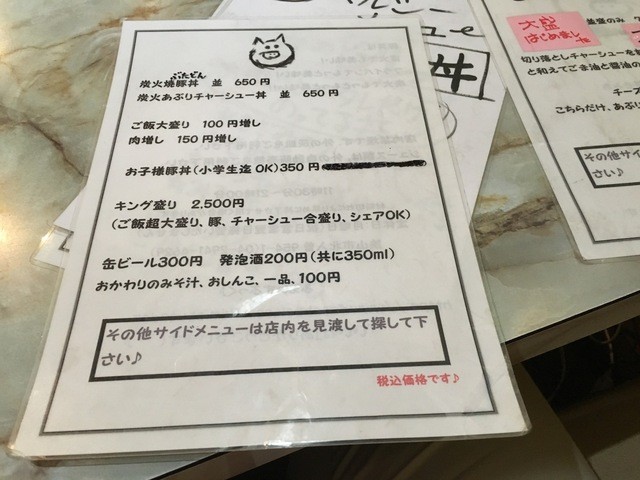 ぶたどん
炭火焼豚丼 並 650円
炭火あぶりチャーシュー丼 並 650円
ご飯大盛り 100円増し
肉増し 150円増し
お子様豚丼(小学生迄OK)350円
キング盛り 2,500円
(ご飯超大盛り、豚、チャーシュー合盛り、シェアOK)
缶ビール300円 発泡酒200円(共に350ml)
おかわりのみそ汁、おしんこ、一品、100円
その他サイドメニューは店内を見渡して探して下
さい♪
税込価格です♪
丼
大盛
はじめまし
切り落としチャーシューを
と和えてごま油と醤油の
チーズ
こちらだけ、あぶ
その他サイドメニ
さい♪